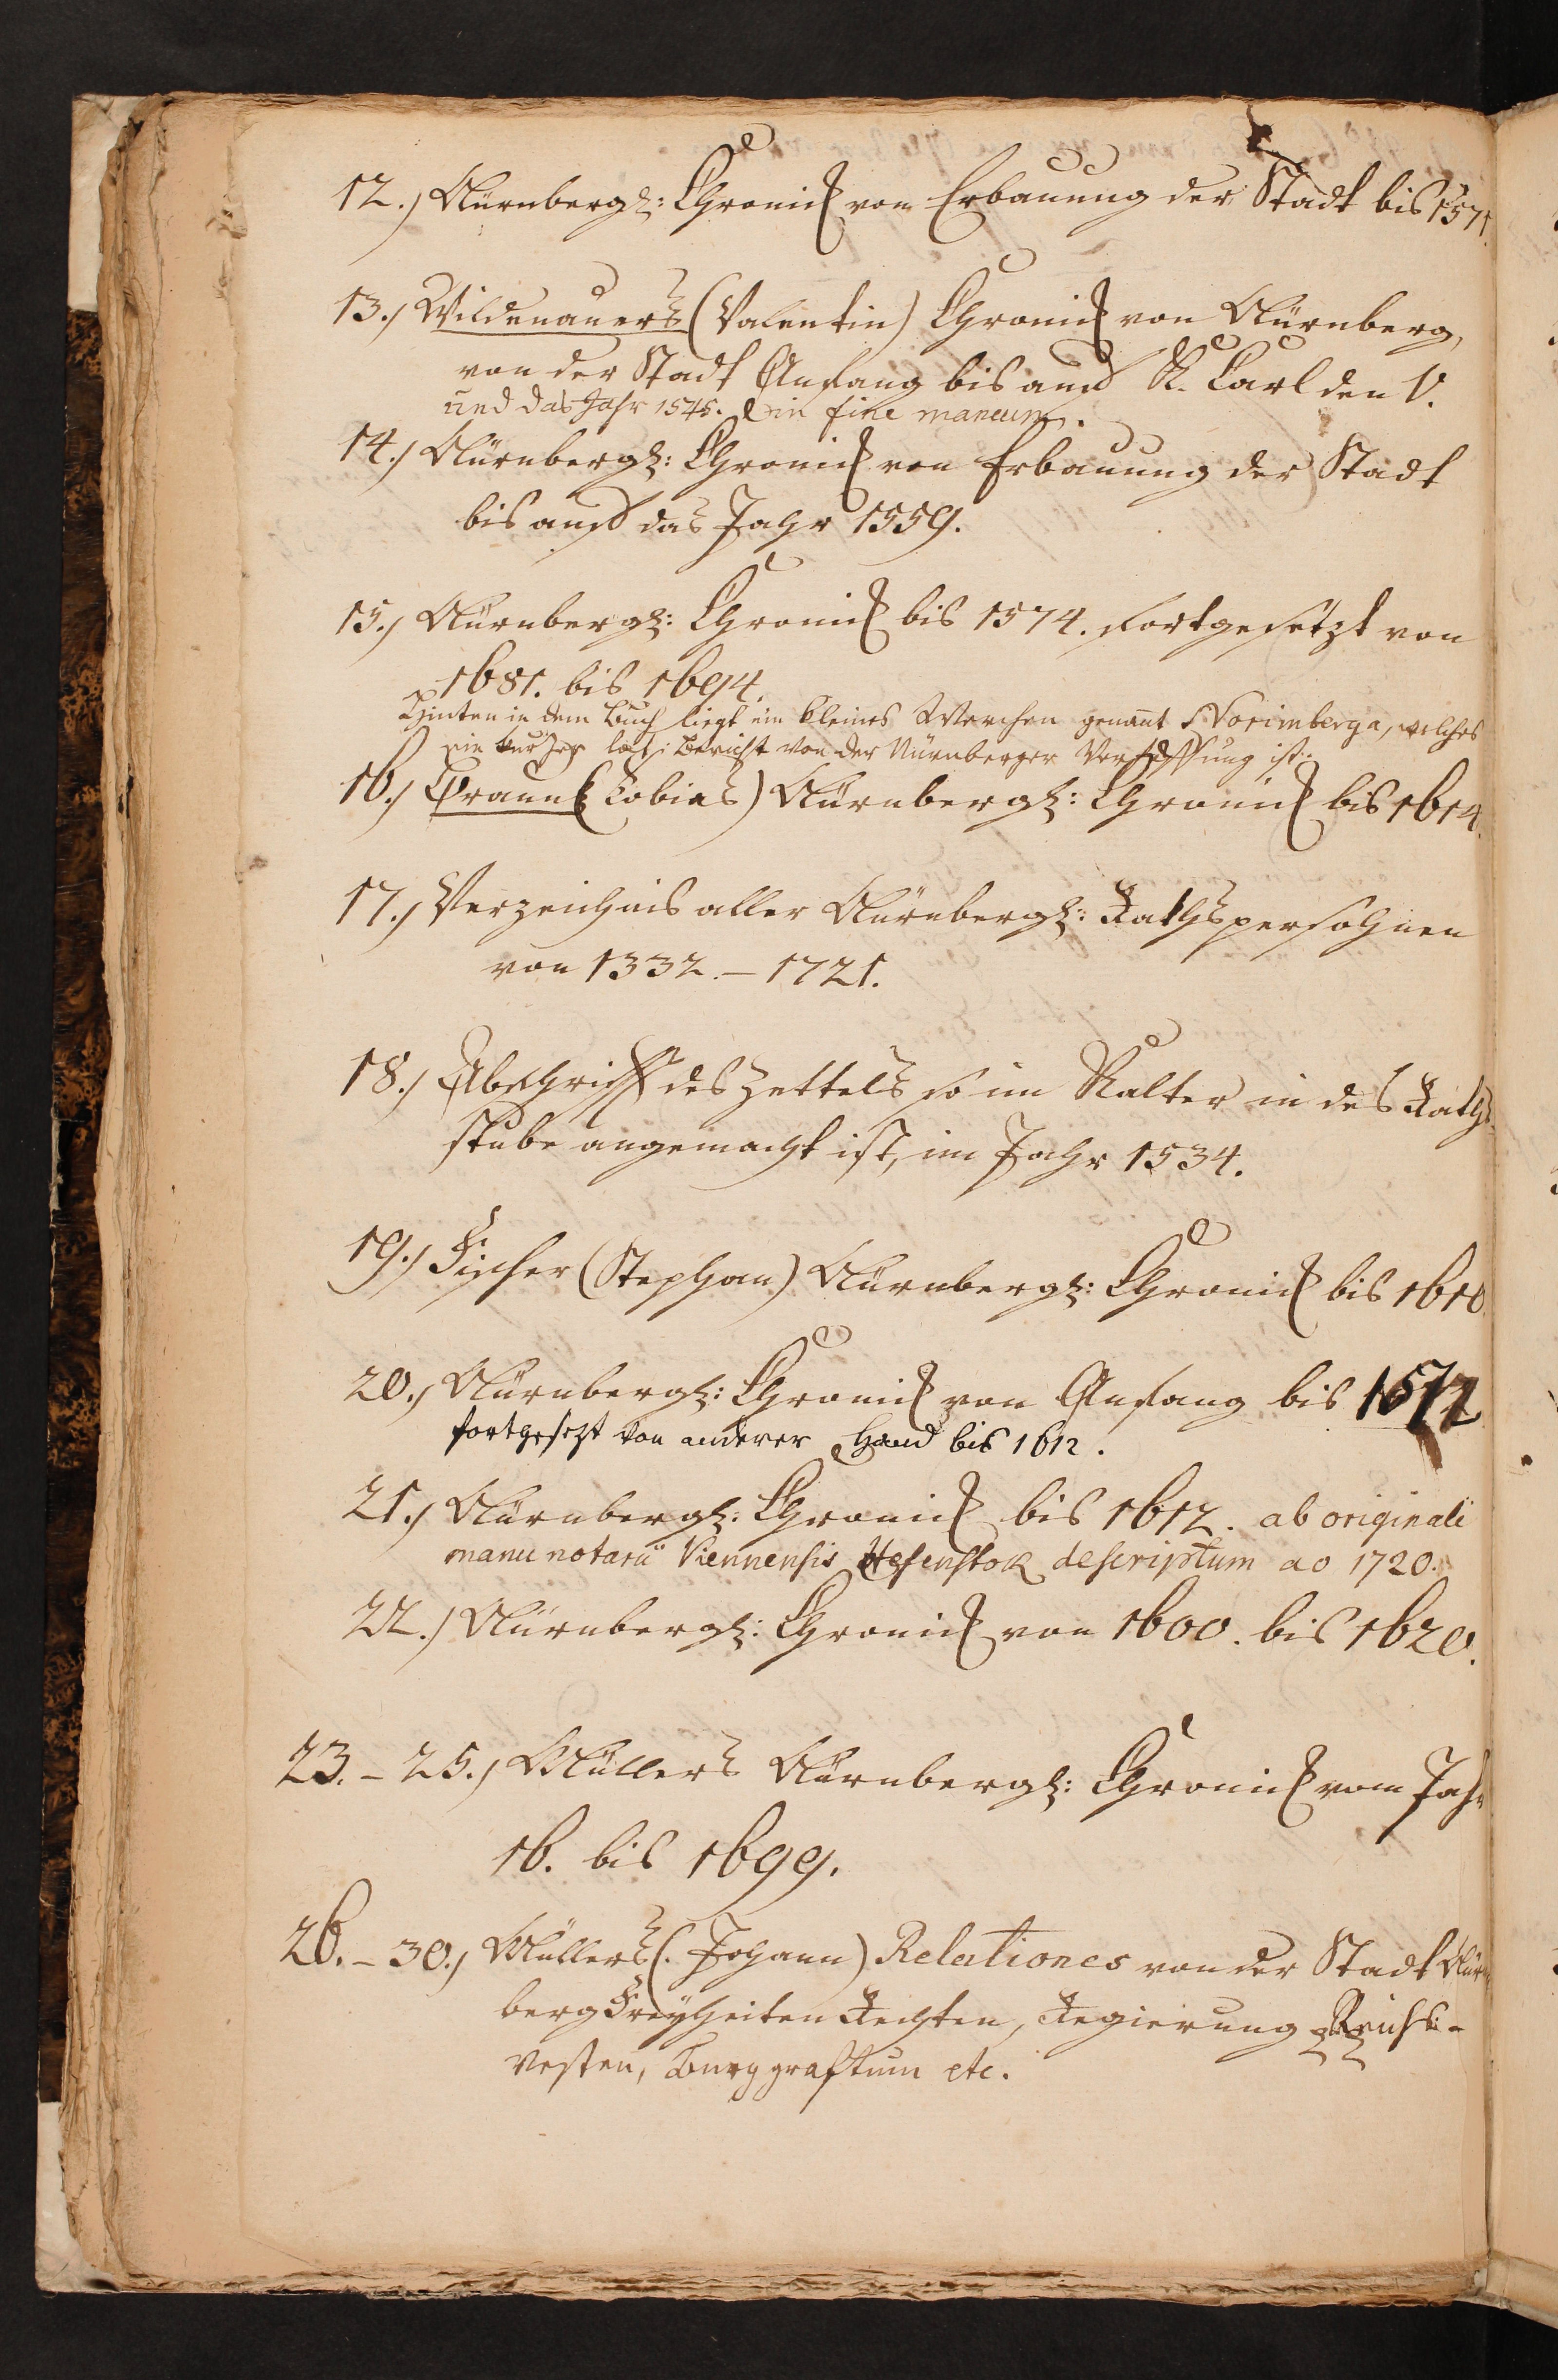 12.) Nürnbergl: Chronick von Erbauung der Stadt bis 1571.
13.) Wildenauers (Valentin) Chronick von Nürnberg,
von der Stadt Anfang bis auf K. Carl den V.
und das Jahr 1545. in fine mancum.
14.) Nürnbergl: Chronick von Erbauung der Stadt
bis auf das Jahr 1559.
15.) Nürnbergl: Chronick bis 1574. fortgesetzt von
1681. bis 1694.
Hinten in dem Buch liegt ein kleines Werckchen genant Norimberga, welches
ein kurzer lat: Bericht von der Nürnberger Verfassung ist.
16.) Praun (Tobias) Nürnbergl: Chronick bis 1614.
17.) Verzeichnis aller Nürnbergl: Rathspersohnen
von 1332. – 1721.
18.) Abschrifft des Zettels so im Kalter in des Raths
stube angemacht ist, im Jahr 1534.
19.) Fischer (Stephan) Nürnbergl: Chronick bis 1610.
20.) Nürnbergl: Chronick von Anfang bis
fortgesezt von anderer Hand bis 1612.
21.) Nürnbergl: Chronick bis 1612. ab originali
manu notarii Viennensis descriptum ao 1720.
22.) Nürnbergl: Chronick von 1600. bis 1620.
23. – 25.) Müllers Nürnbergl: Chronick vom Jahr
16. bis 1699.
26. – 30.) Müllers (Johann) Relationes von der Stadt Nürn
berg Freyheiten Rechten, Regierung Reichs-
vesten, Burggraftum etc.